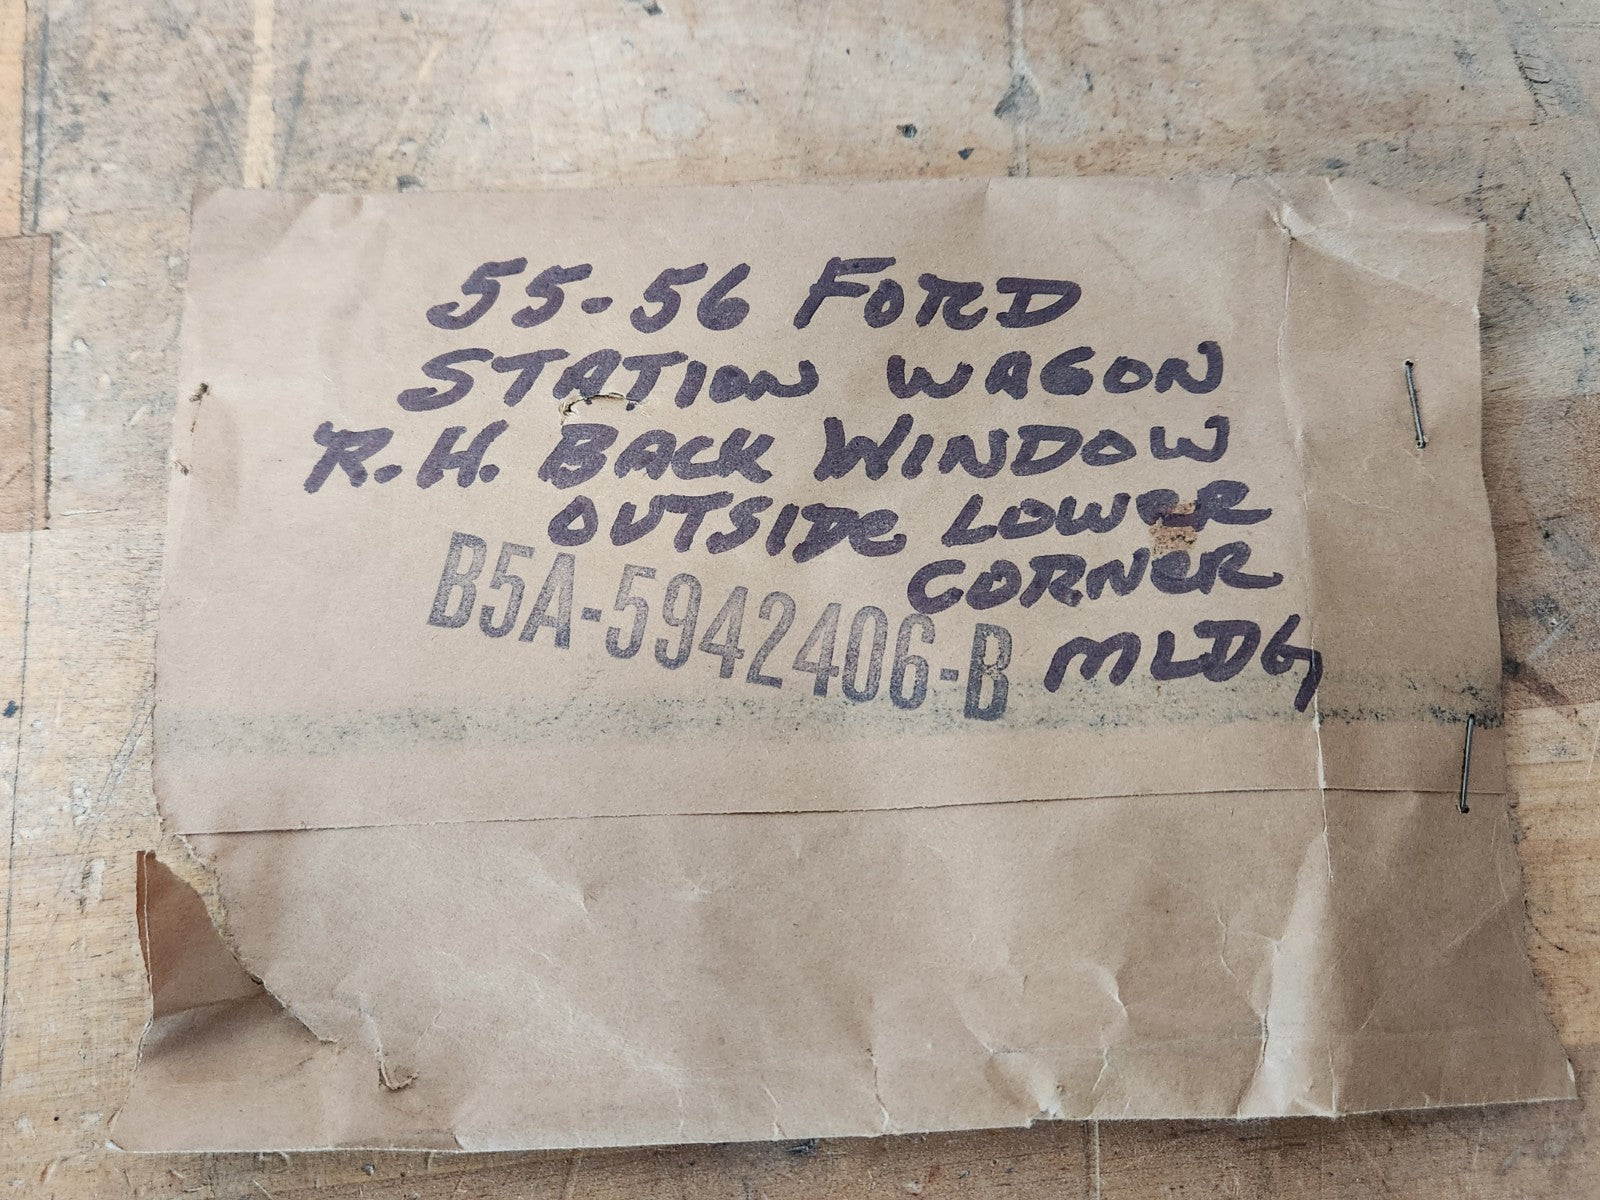 55-56 FORD
STATION WAGON
R.H. BACK WINDOW
OUTSIDE LOWER
CORNER
MLDG
B5A-5942406-B